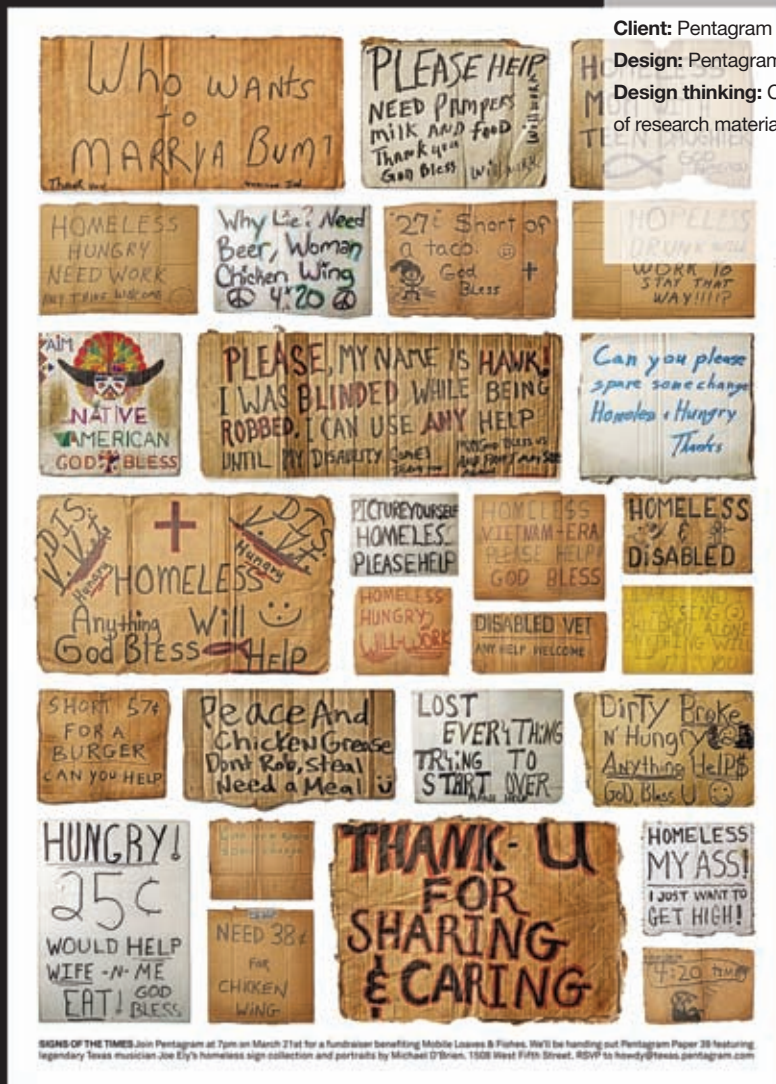 Client: Pentagram
Design: Pentagram
Design thinking:
of research materia
Who WANTS
to
MARRY A BUM?
Thank you
PLEASE HELP
NEED PAMPERS
milk AND FOOD
Thank you
God Bless
Will work
Will work
HOMELESS
MOM
TEEN DAUGHTER
GOD
HOMELESS
HUNGRY
NEED WORK
ANY THING WELCOME
Why Lie? Need
Beer, Woman
Chicken Wing
4:20
27¢ Short of
a taco.
God
Bless
HOPELESS
DRUNK WILL
WORK TO
STAY THAT
WAY!!!!?
AIM
NATIVE
AMERICAN
GOD BLESS
PLEASE, MY NAME IS HAWK!
I WAS BLINDED WHILE BEING
ROBBED. I CAN USE ANY HELP
UNTIL MY DISABILITY COMES
Can you please
spare some change
Homeless & Hungry
Thanks
DIS.
V. Vet
Hungry
DIS.
V. Vet.
Hungry
HOMELESS
Anything Will
God Bless HELP
PICTURE YOURSELF
HOMELES
PLEASE HELP
HOMELESS
VIETNAM-ERA
PLEASE HELP!
GOD BLESS
HOMELESS
DiSABLED
HOMELESS
HUNGRY
WILL-WORK
DISABLED VET
ANY HELP WELCOME
AND
RAISING
CHILDREN ALONE
ANYTHING WILL
SHORT 57¢
FOR A
BURGER
CAN YOU HELP
Peace And
Chicken Grease
Dont Rob, Steal
Need a Meal
LOST
EVERYTHING
TRYING TO
START OVER
PLEASE HELP
DirTy Broke
N' Hungry
Anything Help$
GoD Bless U
HUNGRY!
25¢
WOULD HELP
WIFE -N- ME
EAT! GOD
BLESS
NEED 38¢
FOR
CHICKEN
WING
THANK-U
FOR
SHARING
& CARING
HOMELESS
MY ASS!
I JUST WANT TO
GET HIGH!
4:20
SIGNS OF THE TIMES Join Pentagram at 7pm on March 21st for a fundraiser benefiting Mobile Loaves & Fishes. We'll be handing out Pentagram Paper 39 featuring
legendary Texas musician Joe Ely's homeless sign collection and portraits by Michael O'Brien. 1508 West Fifth Street. RSVP to howdy@texas.pentagram.com